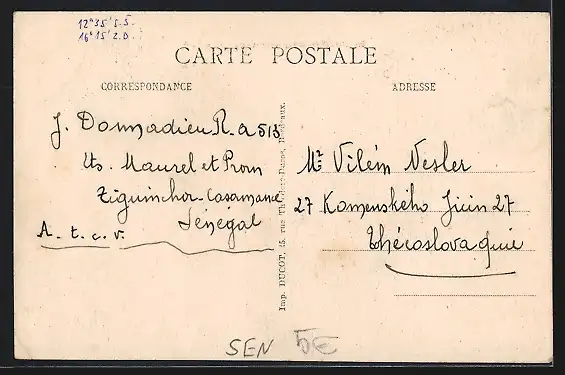 12°35' s.š.
16°15' z.d.
CARTE POSTALE
CORRESPONDANCE
ADRESSE
J. Donnadieu R. a 513
Ets. Maurel et Prom
Ziguinchor. Casamance
Sénégal
A. t. c. v.
Imp. DUCOT, 45, rue Bordeaux.
Mr Vilém Nesler
27 Komenského Jicin 27
Théroslovaquie
SEN 5€